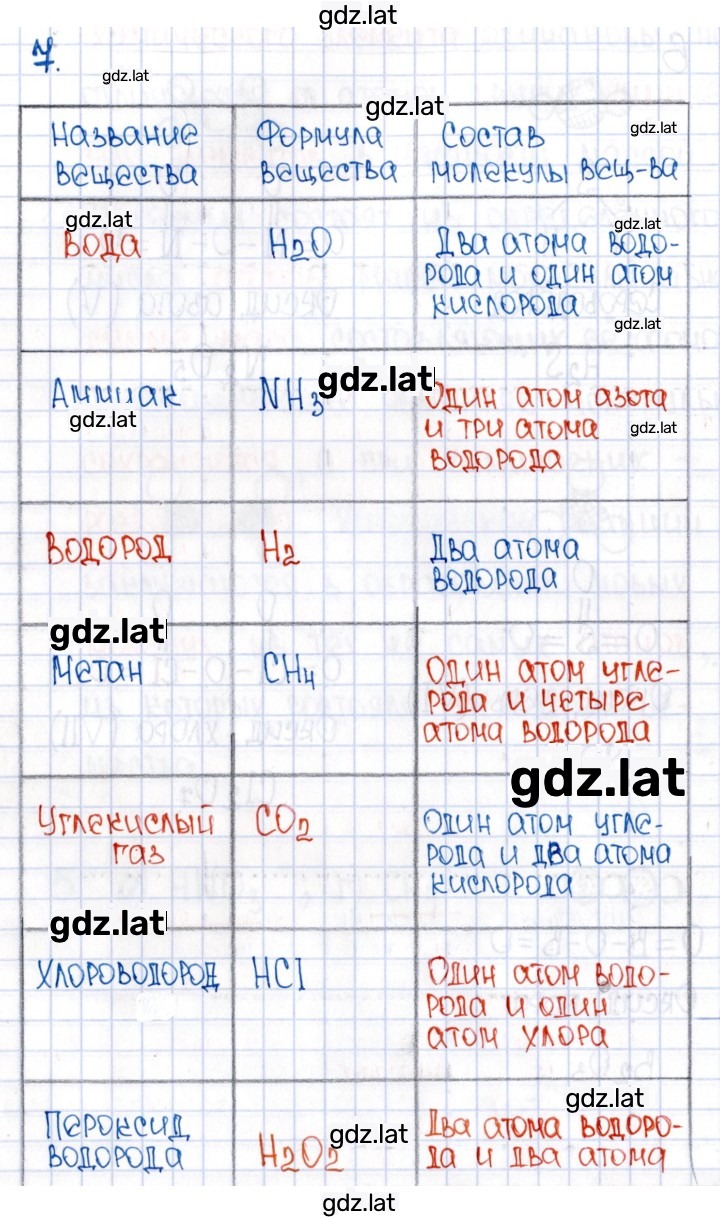 gdz.lat
7.
gdz.lat
gdz.lat
Название вещества
Формула вещества
Состав молекулы вещ-ва
gdz.lat
gdz.lat
Вода
H2O
Два атома водо-
рода и один атом
кислорода
gdz.lat
gdz.lat
Аммиак
NH3
gdz.lat
Один атом азота
и три атома
водорода
gdz.lat
gdz.lat
Водород
H2
Два атома
водорода
gdz.lat
Метан
CH4
Один атом угле-
рода и четыре
атома водорода
gdz.lat
Углекислый
газ
CO2
Один атом угле-
рода и два атома
кислорода
gdz.lat
Хлороводород
HCl
Один атом водо-
рода и один
атом хлора
Пероксид
водорода
H2O2
gdz.lat
gdz.lat
Два атома водоро-
да и два атома
gdz.lat